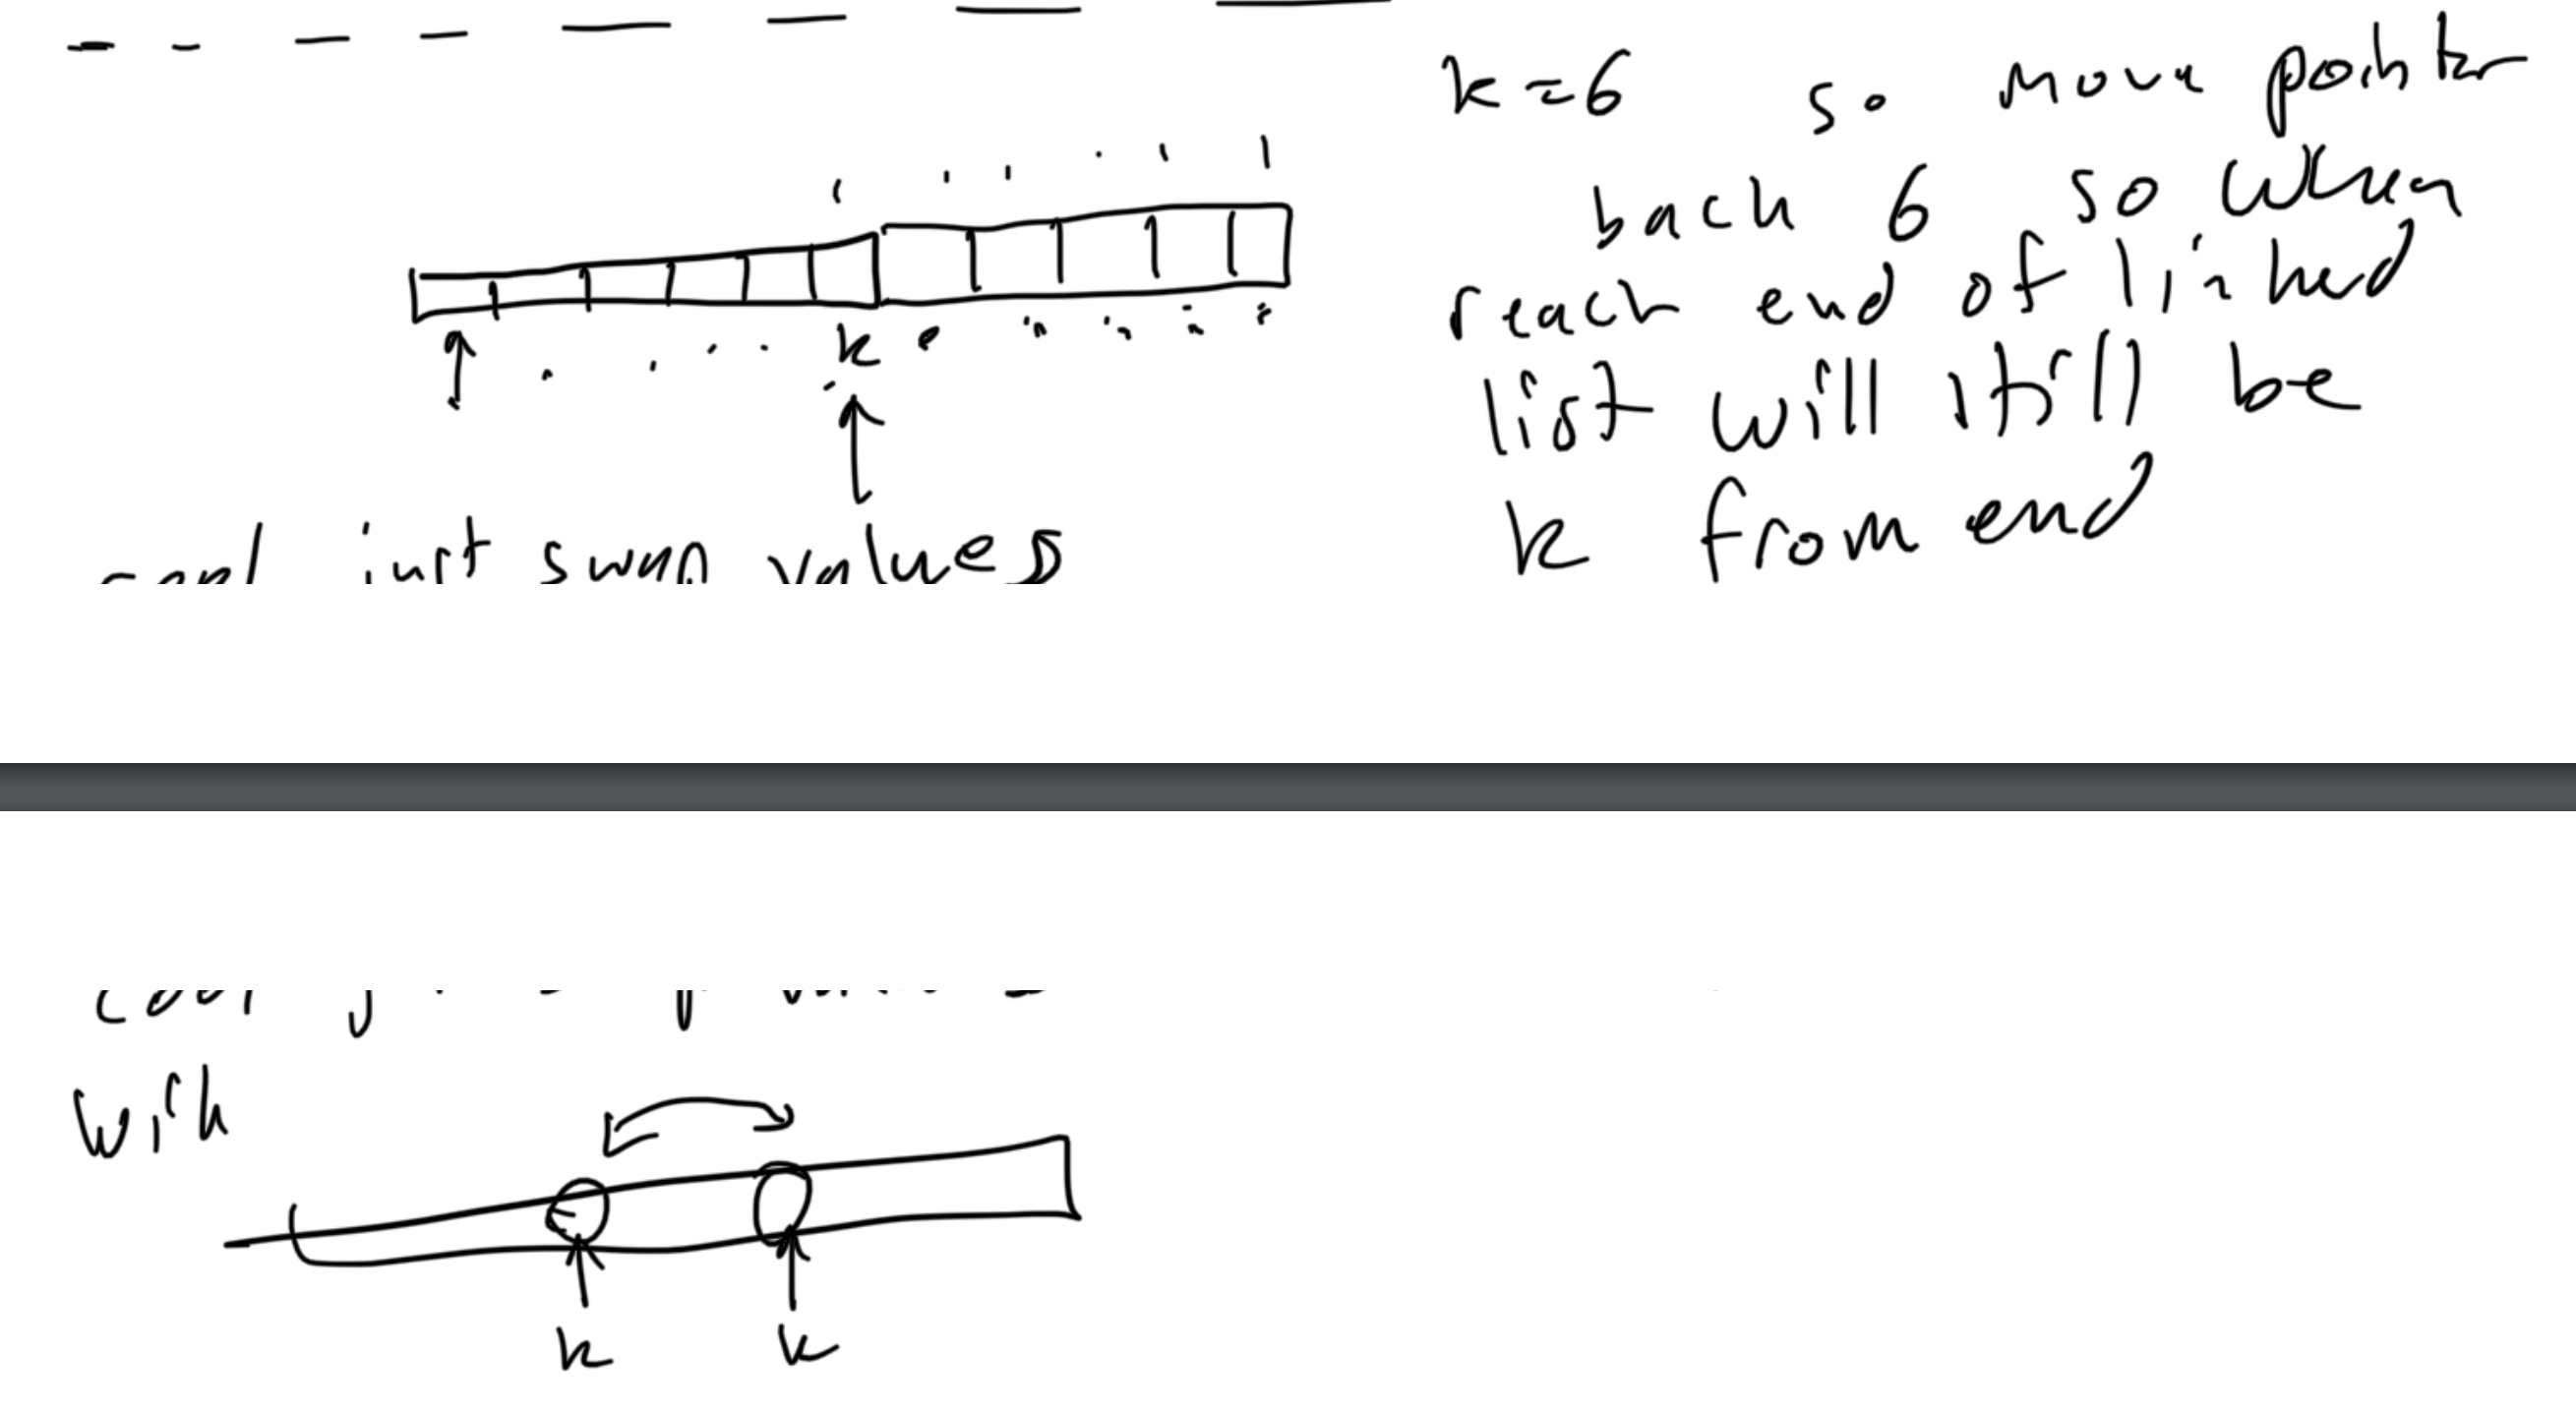 k = 6 so move pointer
back 6 so when
reach end of linked
list will still be
k from end
k
can just swap values
with
k k